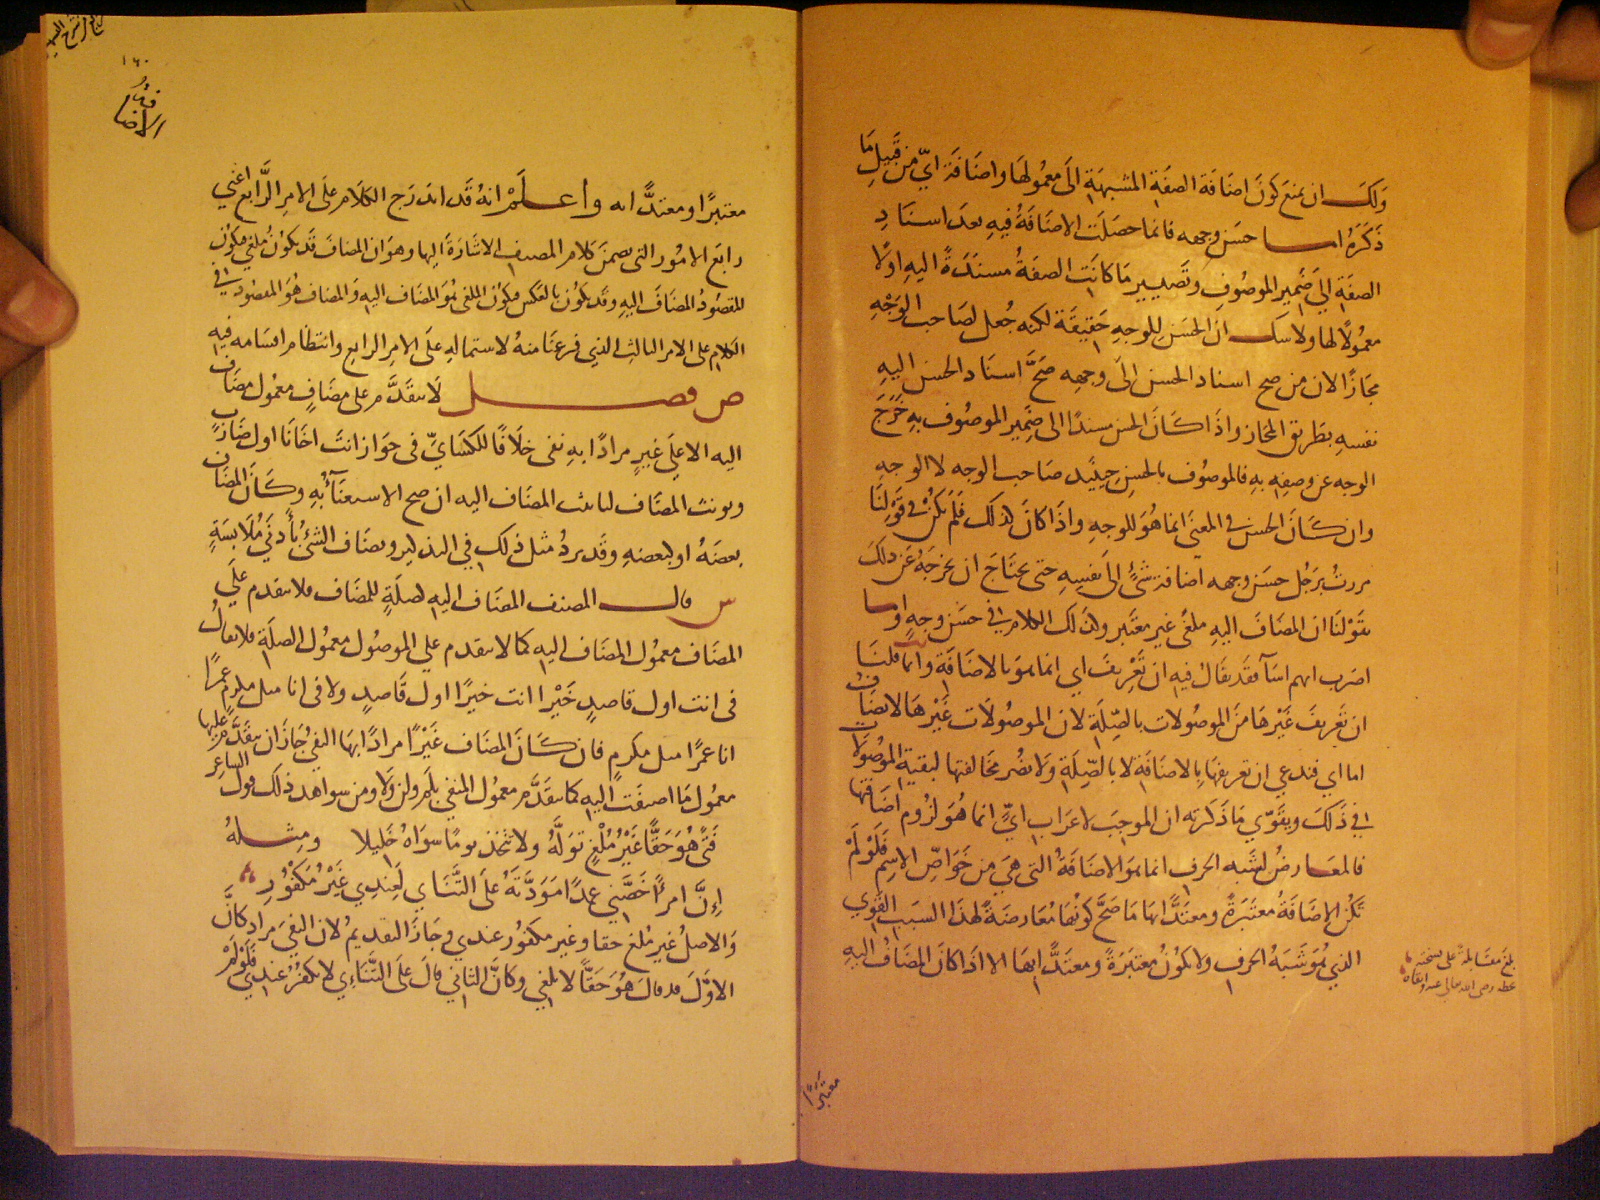 ولك ان تمنع كون اضافة الصفة المشبهة الى معمولها واضافة اي من قبيل ما
ذكره اما حسن وجهه فانما حصلت الاضافة فيه بعد اسناد
الصفة الى ضمير الموصوف وتصيير ما كانت الصفة مسندة اليه اولا
معمولا لها ولا شك ان الحسن للوجه حقيقة لكنه جعل لصاحب الوجه
مجازا لان من صح اسناد الحسن الى وجهه صح اسناد الحسن اليه
نفسه بطريق المجاز واذا كان الحسن مسندا الى ضمير الموصوف به خرج
الوجه عن وصفه به فالموصوف بالحسن حينئذ صاحب الوجه لا الوجه
وان كان الحسن في المعنى انما هو للوجه واذا كان كذلك فلم يكن في قولنا
مررت برجل حسن وجهه اضافة شئ الى نفسه حتى يحتاج ان نخرجه عن ذلك
بقولنا ان المضاف اليه ملغى غير معتبر وكذلك الكلام في حسن وجه واما
اضرب ايهم اسا فقد يقال فيه ان تعريف اي انما هو بالاضافة وانما قلنا
ان تعريف غيرها من الموصولات بالصلة لان الموصولات غيرها لا تضاف
اما اي فندعي ان تعريفها بالاضافة لا بالصلة ولا يضر مخالفتها لبقية الموصولات
في ذلك ويقوي ما ذكرته ان الموجب لاعراب اي انما هو لزوم اضافتها
فالمعارض لشبه الحرف انما هو الاضافة التي هي من خواص الاسم فلو لم
تكن الاضافة معتبرة ومعتدا بها ما صح كونها معارضة لهذا السبب القوي
الذي هو شبه الحرف ولا تكون معتبرة ومعتدا بها الا اذا كان المضاف اليه
بلغ مقابلة على نسخة
خطه رضي الله تعالى عنه
معتبرا
١٦٠
الاضافة
معتبرا ومعتدا به واعلم انه قد اندرج الكلام على الامر الرابع اعني
رابع الامور التي تضمن كلام المصنف الاشارة اليها وهو ان المضاف قد يكون ملغى فيكون
المقصود المضاف اليه وقد يكون بالعكس فيكون الملغى هو المضاف اليه والمضاف هو المقصود في
الكلام على الامر الثالث الذي فرغنا منه لاستماله على الامر الرابع وانتظام اقسامه فيه
ص فصل لا يتقدم على مضاف معمول مضاف
اليه الا على غير مرادا به نفى خلافا للكسائي في جواز انت اخانا اول ضارب
ويونث المضاف لتانيث المضاف اليه ان صح الاستغناء به وكان المضاف
بعضه او كبعضه وقد يرد مثل ذلك في التذكير ويضاف الشئ بأدنى ملابسة
س قال المصنف المضاف اليه كصلة للمضاف فلا يتقدم على
المضاف معمول المضاف اليه كما لا يتقدم على الموصول معمول الصلة فلا يقال
في انت اول قاصد خيرا انت خيرا اول قاصد ولا في انا مثل مكرم عمرا
انا عمرا مثل مكرم فان كان المضاف غيرا مرادا بها النفي جاز ان يتقدم عليها
معمول ما اضيفت اليه كما يتقدم معمول المنفي بلم ولن ولا ومن شواهد ذلك قول الشاعر
فتى هو حقا غير ملغ توله ولا تتخذ يوما سواه خليلا ومثله
ان امرأ خصني عمدا مودته على التنائي لعندي غير مكفور
والاصل غير ملغ حقا وغير مكفور عندي وجاز التقديم لان النفي مراد كان
الاول قد قال هو حقا لا يلغي وكان الثاني قال على التنائي لا يكفر عندي فلو لم